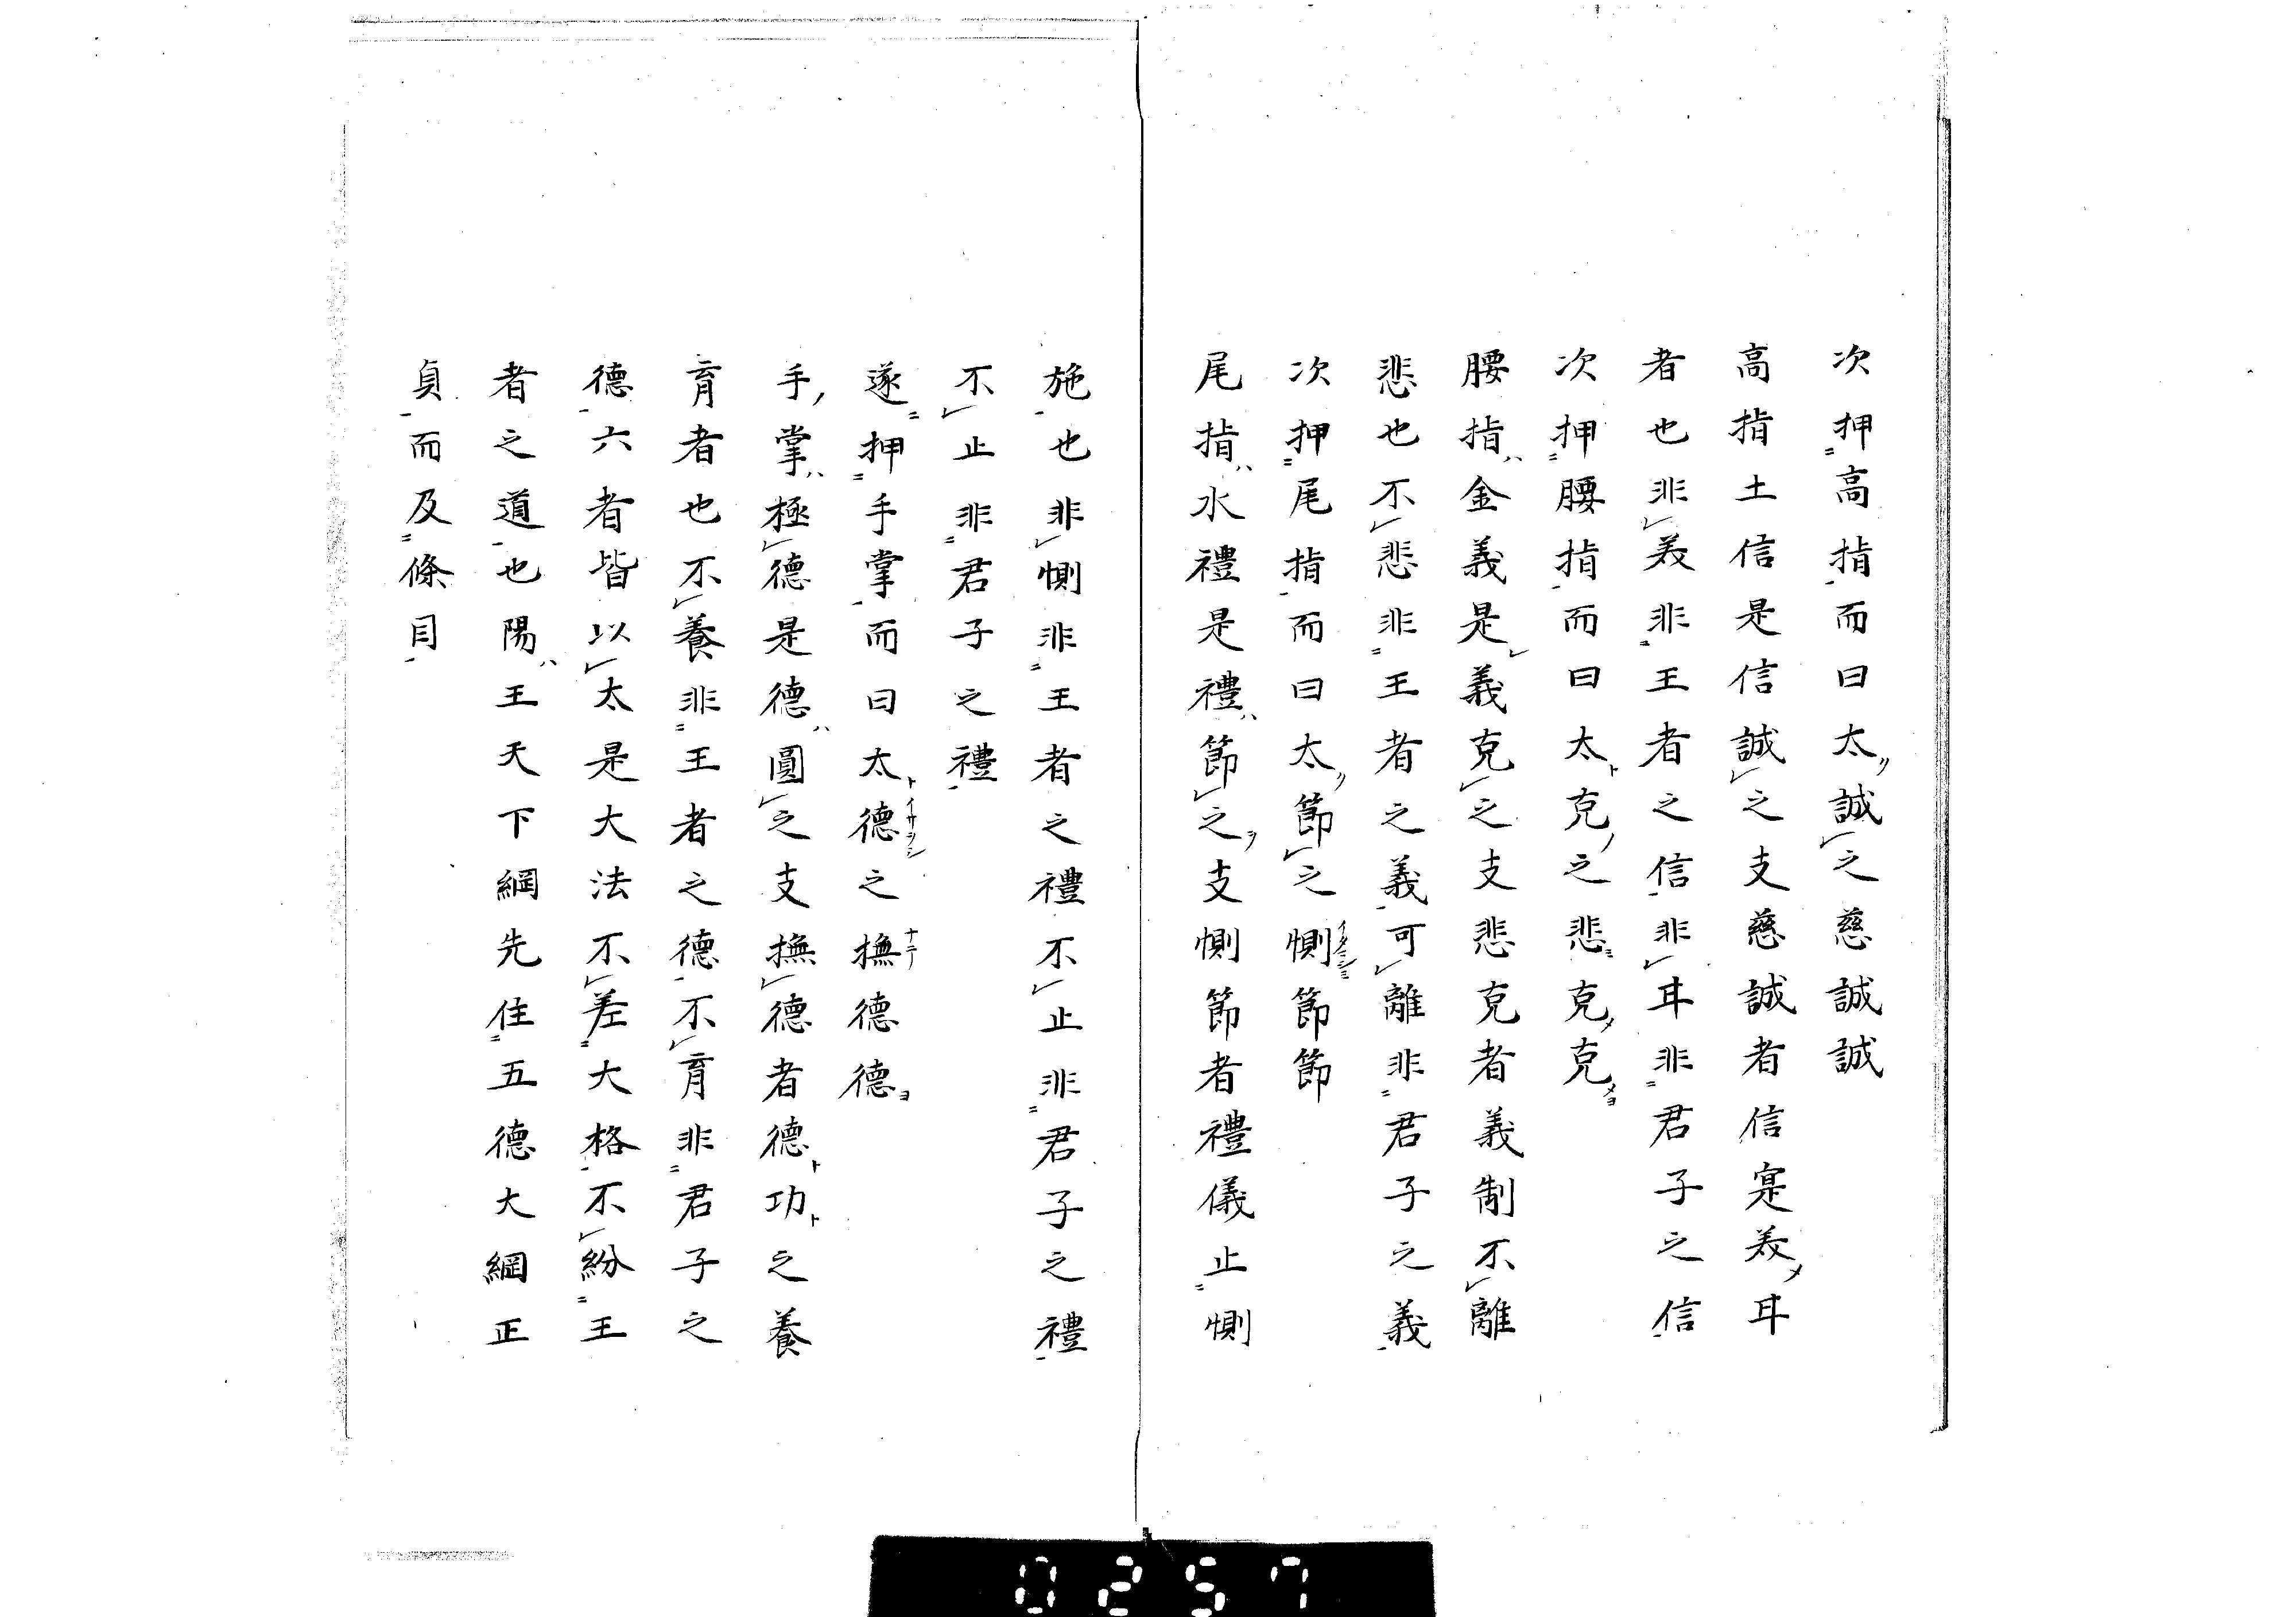 次押高指而曰太誠之慈誠誠
高指土信是信誠之支慈誠者信寔美耳
者也非美非王者之信非耳非君子之信
次押腰指而曰太克之悲克克
腰指金義是義克之支悲克者義制不離
悲也不悲非王者之義可離非君子之義
次押尾指而曰太節之惻節節
尾指水禮是禮節之支惻節者禮儀止惻
施也非惻非王者之禮不止非君子之禮
不止非君子之禮
遂押手掌而曰太德之撫德德
手掌極德是德圓之支撫德者德功之養
育者也不養非王者之德不育非君子之
德六者皆以太是大法不差大格不紛王
者之道也陽王天下綱先住五德大綱正
貞而及條目
0257